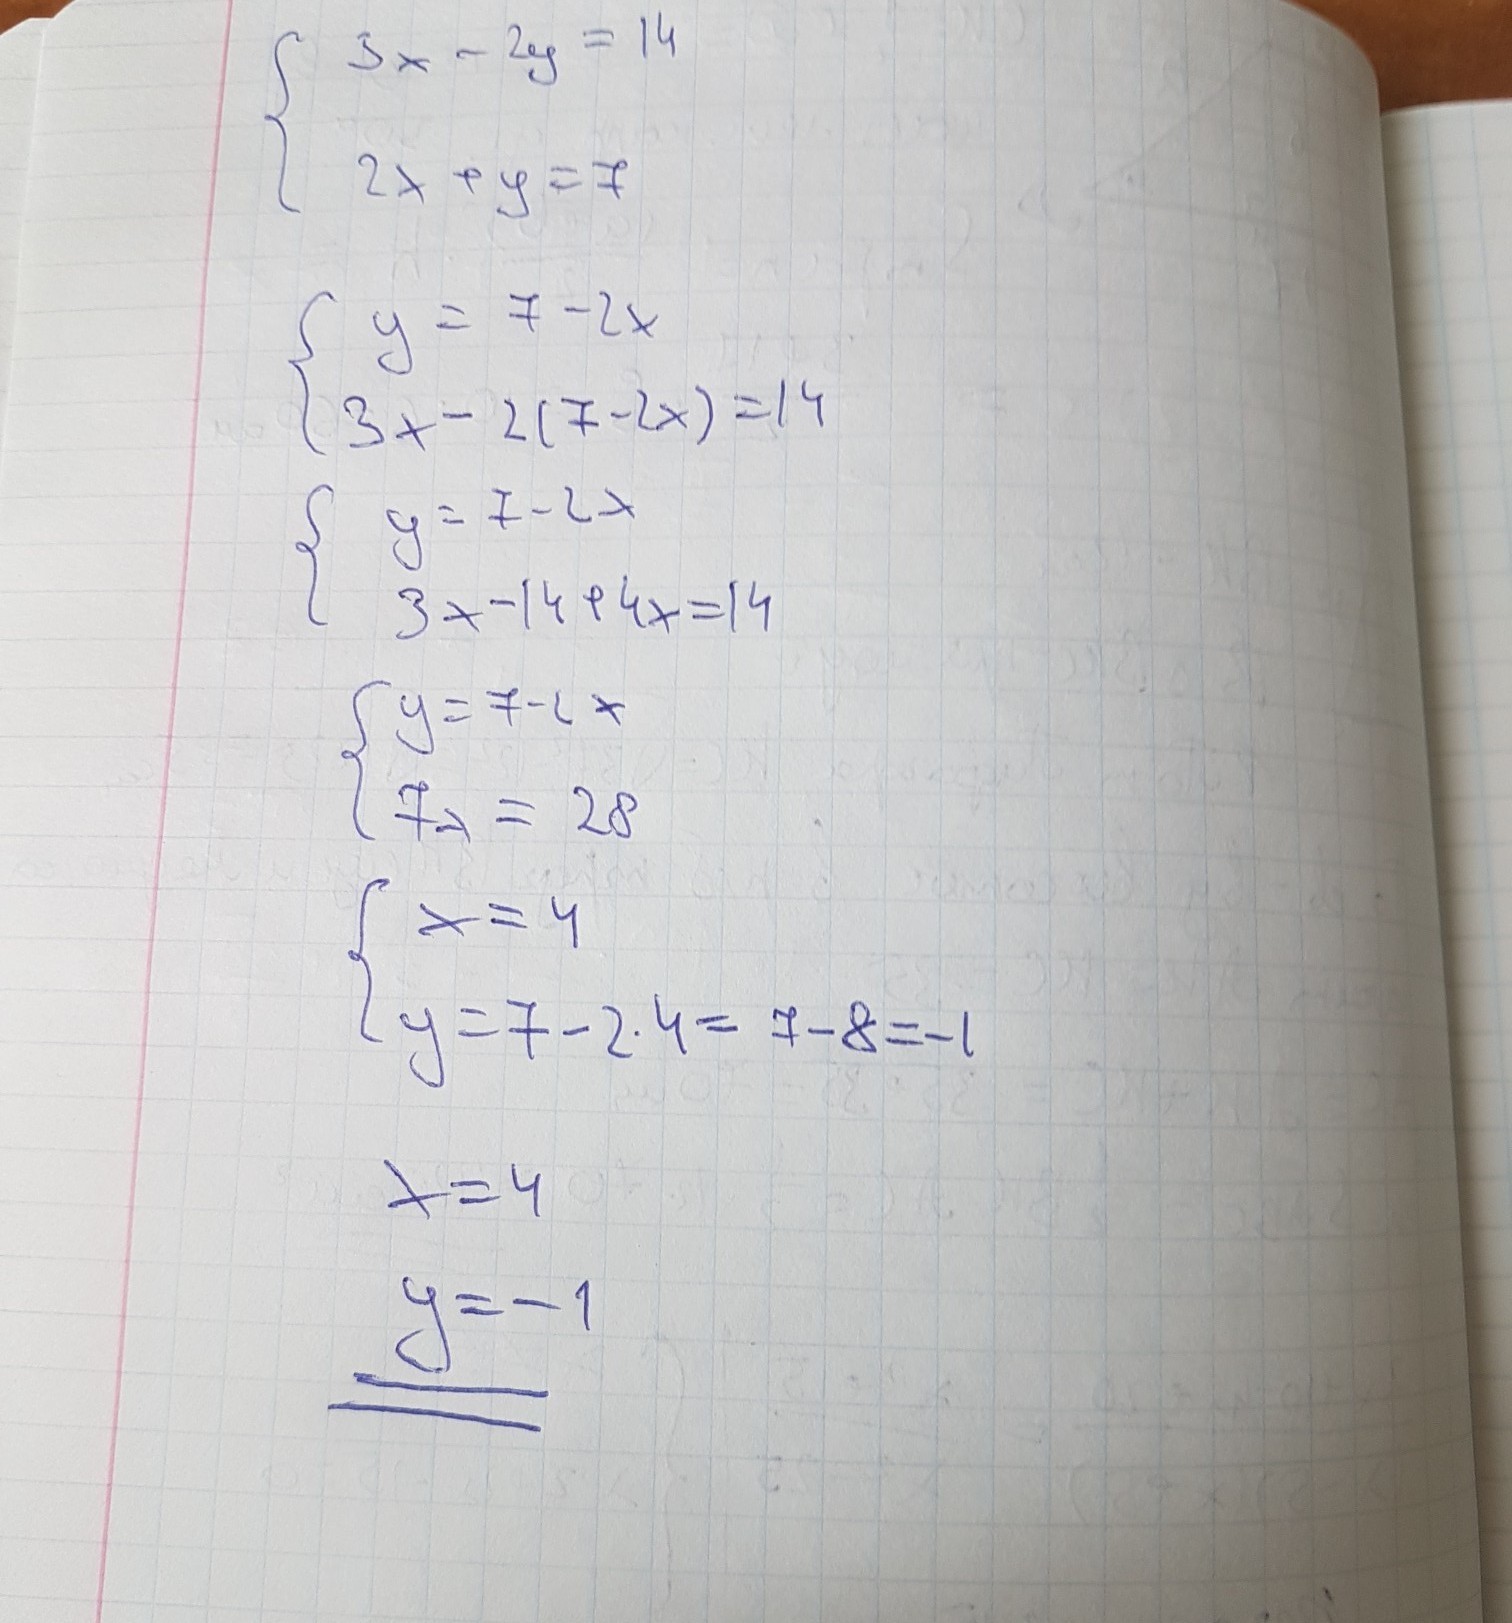 3x - 2y = 14
2x + y = 7
y = 7 - 2x
3x - 2(7 - 2x) = 14
y = 7 - 2x
3x - 14 + 4x = 14
y = 7 - 2x
7x = 28
x = 4
y = 7 - 2 · 4 = 7 - 8 = -1
x = 4
y = -1